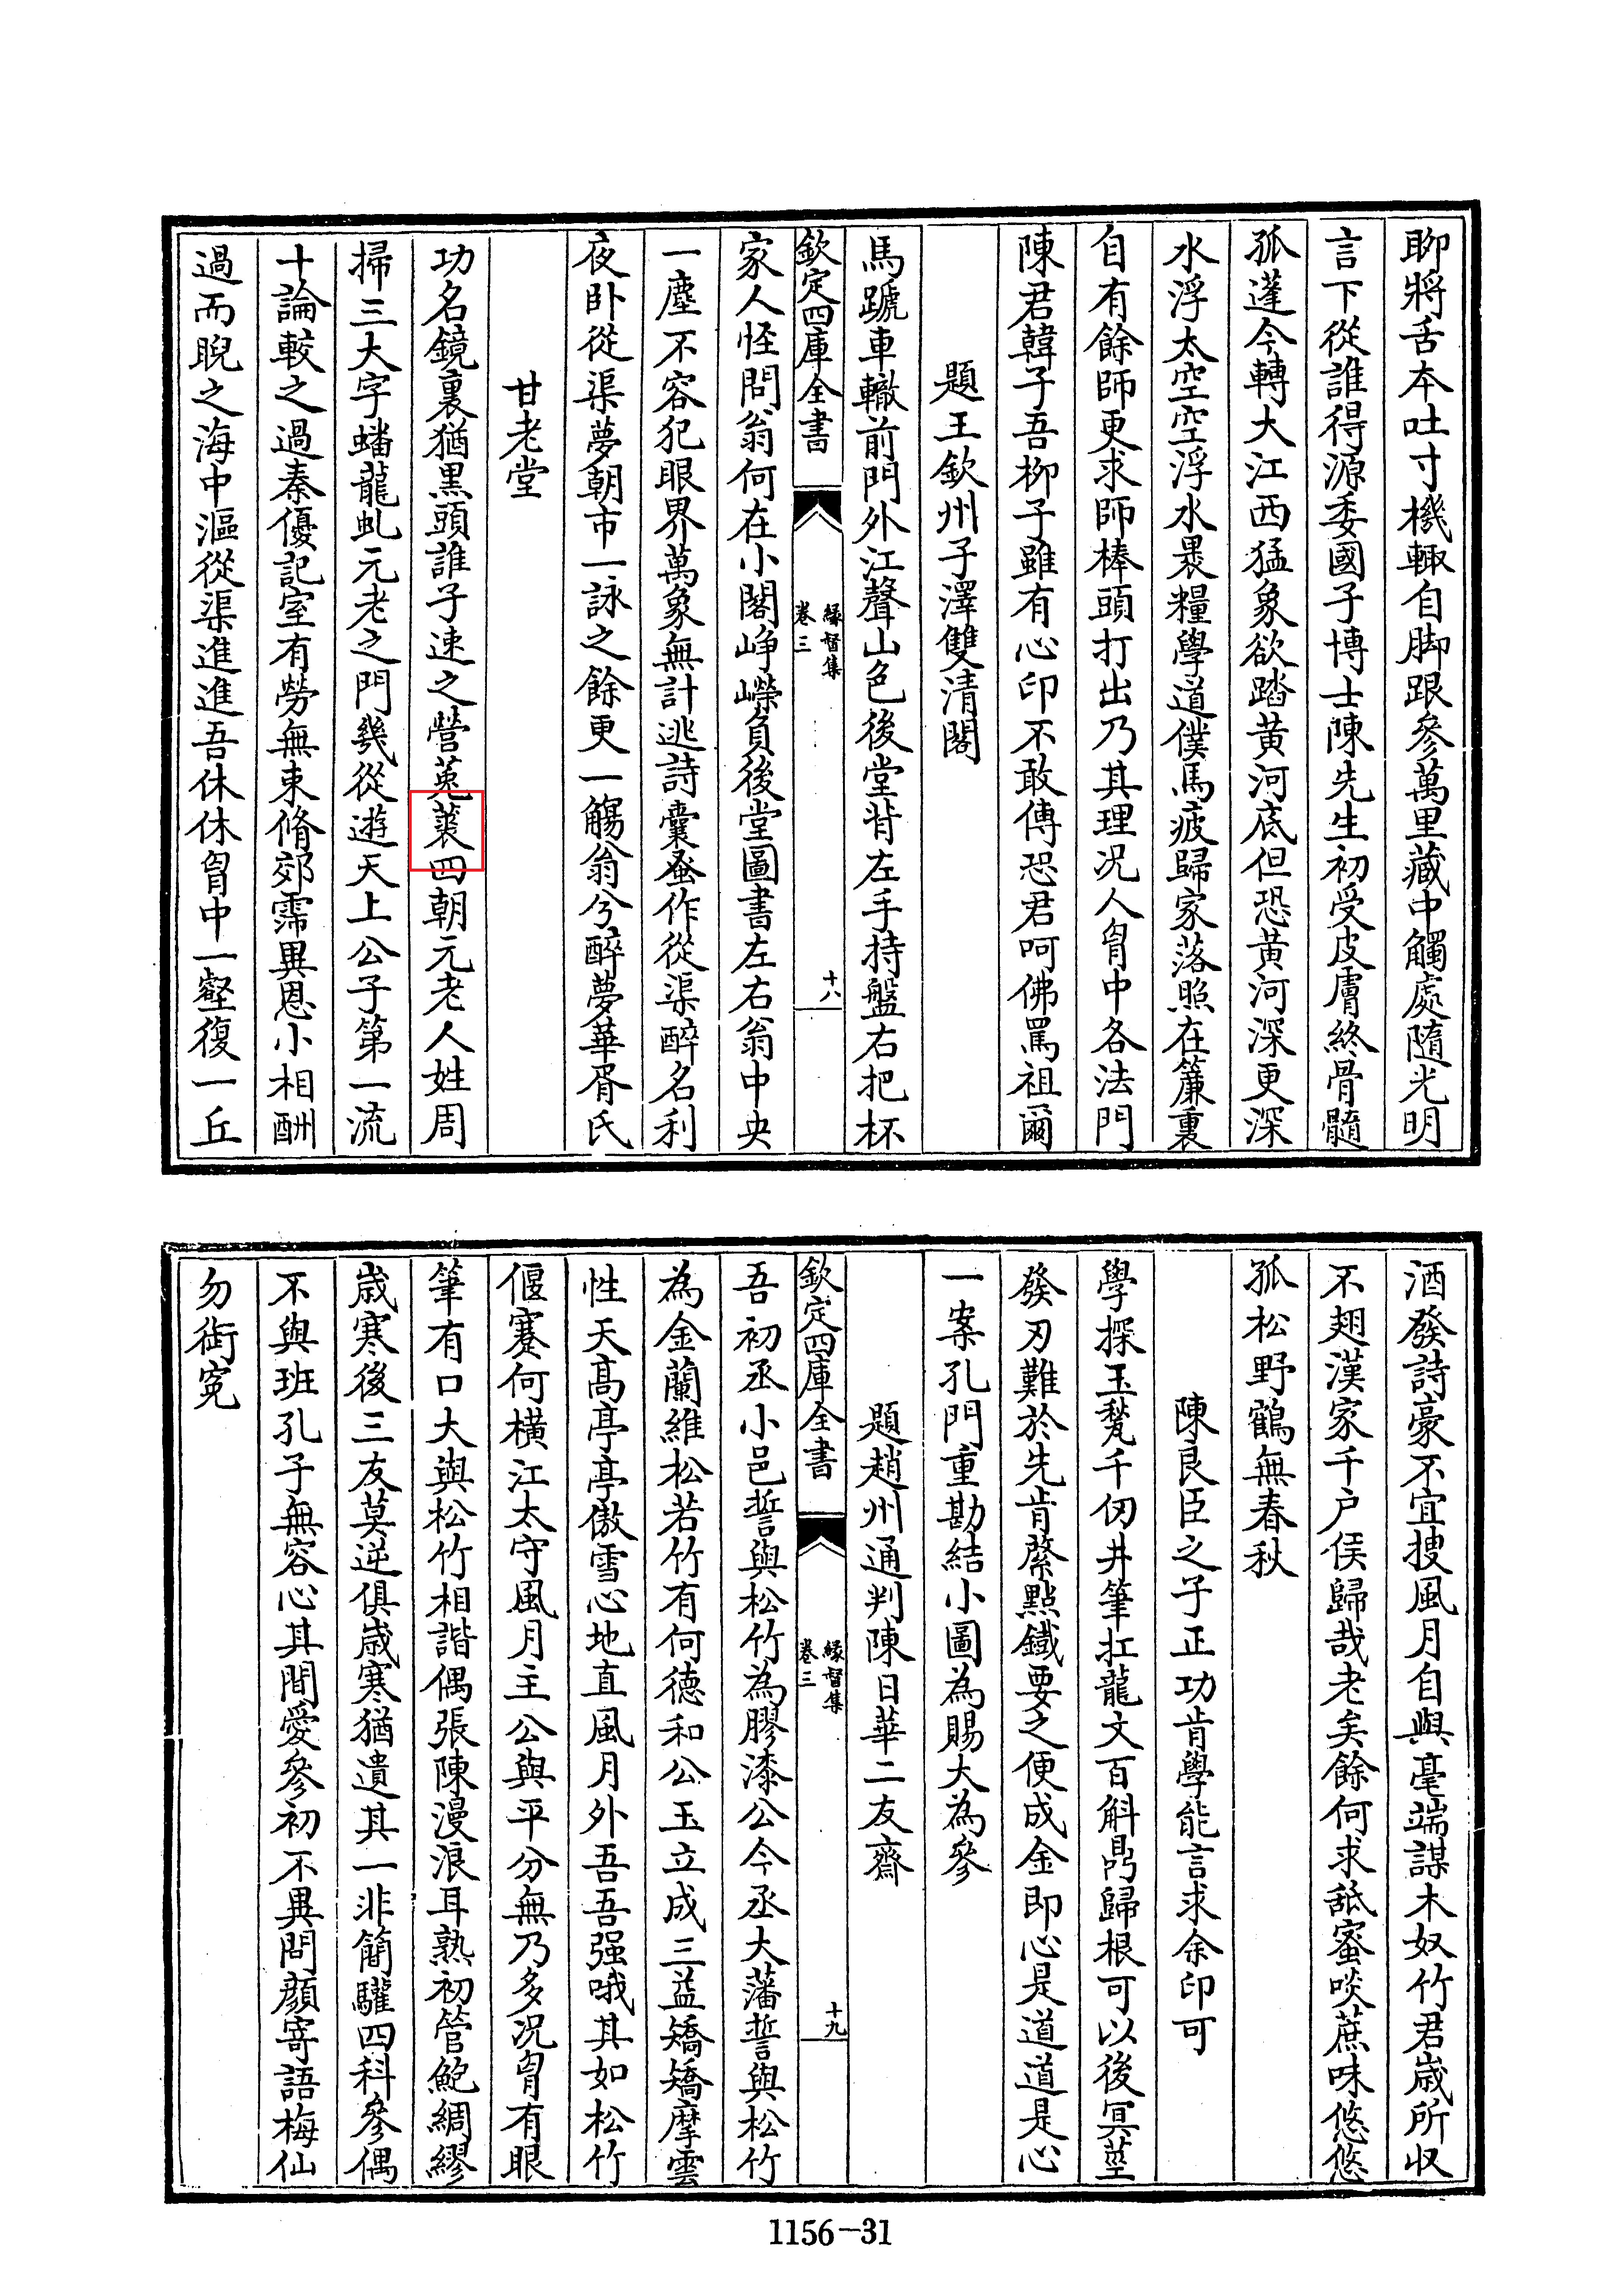 聊將舌本吐寸機輙自脚跟參萬里藏中觸處隨光明
言下從誰得源委國子博士陳先生初受皮膚終骨髓
孤蓬今轉大江西猛象欲踏黃河底但恐黃河深更深
水浮太空空浮水褁糧學道僕馬疲歸家落照在簾裏
自有餘師更求師棒頭打出乃其理況人胷中各法門
陳君韓子吾柳子雖有心印不敢傳恐君呵佛罵祖爾
題王欽州子澤雙清閣
馬蹏車轍前門外江聲山色後堂背左手持盤右把杯
欽定四庫全書
緣督集
卷三
十八
家人怪問翁何在小閣崢嶸負後堂圖書左右翁中央
一塵不容犯眼界萬象無計逃詩囊蚤作從渠醉名利
夜卧從渠夢朝市一詠之餘更一觴翁兮醉夢華胥氏
甘老堂
功名鏡裏猶黒頭誰子速之營菟裘四朝元老人姓周
掃三大字蟠龍虬元老之門幾從遊天上公子第一流
十論較之過秦優記室有勞無束脩郊霈異恩小相酬
過而睨之海中漚從渠進進吾休休胷中一壑復一丘
酒發詩豪不宜搜風月自與毫端謀木奴竹君歲所收
不翅漢家千户侯歸哉老矣餘何求舐蜜啖蔗味悠悠
孤松野鶴無春秋
陳良臣之子正功肯學能言求余印可
學探玉甃千仞井筆扛龍文百斛鼎歸根可以後冥莖
發刃難於先肯綮點鐵要之便成金即心是道道是心
一案孔門重勘結小圖為賜大為參
題趙州通判陳日華二友齋
欽定四庫全書
緣督集
卷三
十九
吾初丞小邑誓與松竹為膠漆公今丞大藩誓與松竹
為金蘭維松若竹有何德和公玉立成三益矯矯摩雲
性天高亭亭傲雪心地直風月外吾吾强哦其如松竹
偃蹇何橫江太守風月主公與平分無乃多況胷有眼
筆有口大與松竹相諧偶張陳漫浪耳熟初管鮑綢繆
歲寒後三友莫逆俱歲寒猶遺其一非簡驩四科參偶
不與班孔子無容心其間愛參初不異問顏寄語梅仙
勿衒寃
1156-31